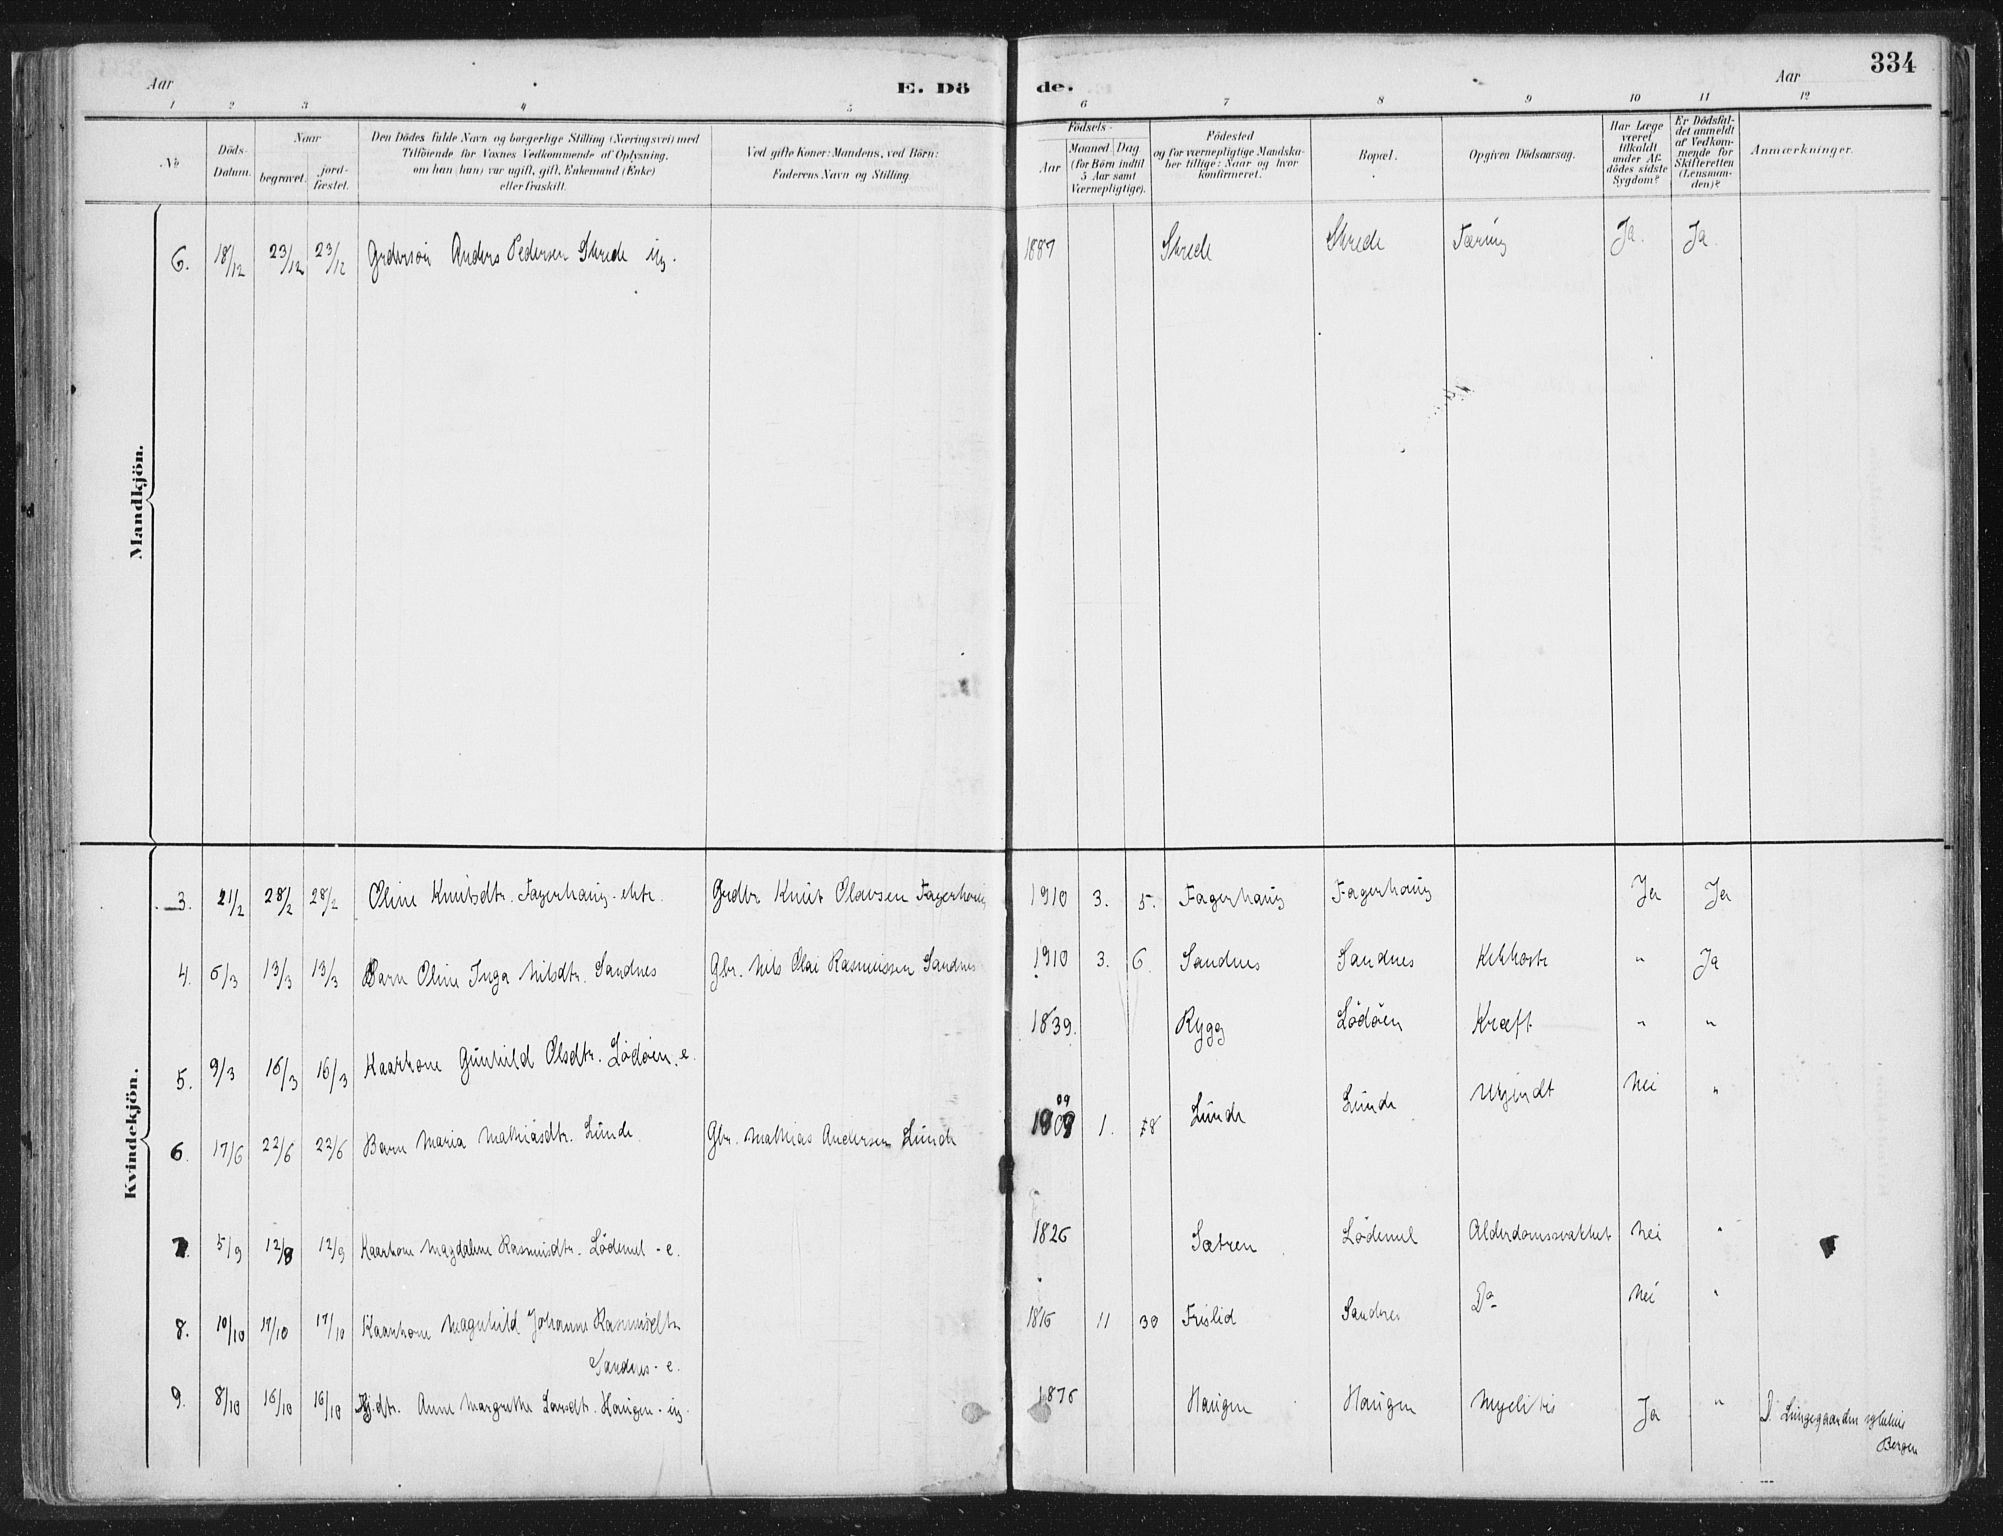 334
Aar E. Dö de. Aar
1 2 3 4 5 6 7 8 9 10 11 12
No
Döds-Datum.
Naar
begravet.
jord-fæstet.
Den Dödes fulde Navn og borgerlige Stilling (Næringsvei) med
Tilföiende for Voxnes Vedkommende af Oplysning,
om han (hun) var ugift, gift, Enkemand (Enke)
eller fraskilt.
Ved gifte Koner: Mandens, ved Börn:
Faderens Navn og Stilling
Födsels-
Aar
Maaned Dag
(for Börn indtil
5 Aar samt
Værnepligtige).
Födested
og for værnepligtige Mandska-
ber tillige: Naar og hvor
konfirmeret.
Bopæl.
Opgiven Dödsaarsag.
Har Læge
været
tilkaldt
under Af-
dödes sidste
Sygdom?
Er Dödsfal-
det anmeldt
af Vedkom-
mende for
Skifteretten
(Lensman-
den)?
Anmærkninger.
Mandkjön.
6. 18/12 23/12 23/12 Grdersön Anders Pedersen Skrede ug. 1887 Skrede Skrede Tæring Ja. Ja
Kvindekjön.
3. 21/2 28/2 28/2 Oline Knutsdtr. Fagerhaug - ekte. Grdbr Knut Olavsen Fagerhaug 1910 3. 5. Fagerhaug Fagerhaug Ja Ja
4. 6/3 13/3 13/3 Barn Oline Inga Nilsdtr. Sandnes Gbr. Nils Olai Rasmussen Sandnes 1910 3. 6. Sandnes Sandnes Kikhoste " Ja
5. 9/3 16/3 16/3 Kaarkone Gunhild Olsdtr. Lödöen. e. 1839. Rygg Lödöen Kræft " "
6. 17/6 22/6 22/6 Barn Maria Mathiasdtr. Lunde. Gbr. Mathias Andersen Lunde 1909 09 1. 28 Lunde Lunde Ukjendt Nei "
7. 5/9 12/9 12/9 Kaarkone Magdalene Rasmusdtr. Lödemel - e. 1826 Sætren Lödemel Alderdomssvakhet Nei "
8. 10/10 17/10 17/10 Kaarkone Magnhild Johanne Rasmusdtr. 1815 11 30 Frislid Sandnes Do Nei "
Sandnes - e.
9. 8/10 16/10 16/10 Gdtr. Anne Margrethe Larsdtr. Haugen - ug. 1876 Haugen Haugen Myelitis Ja " D. Lungegaarden sykehus
Bergen